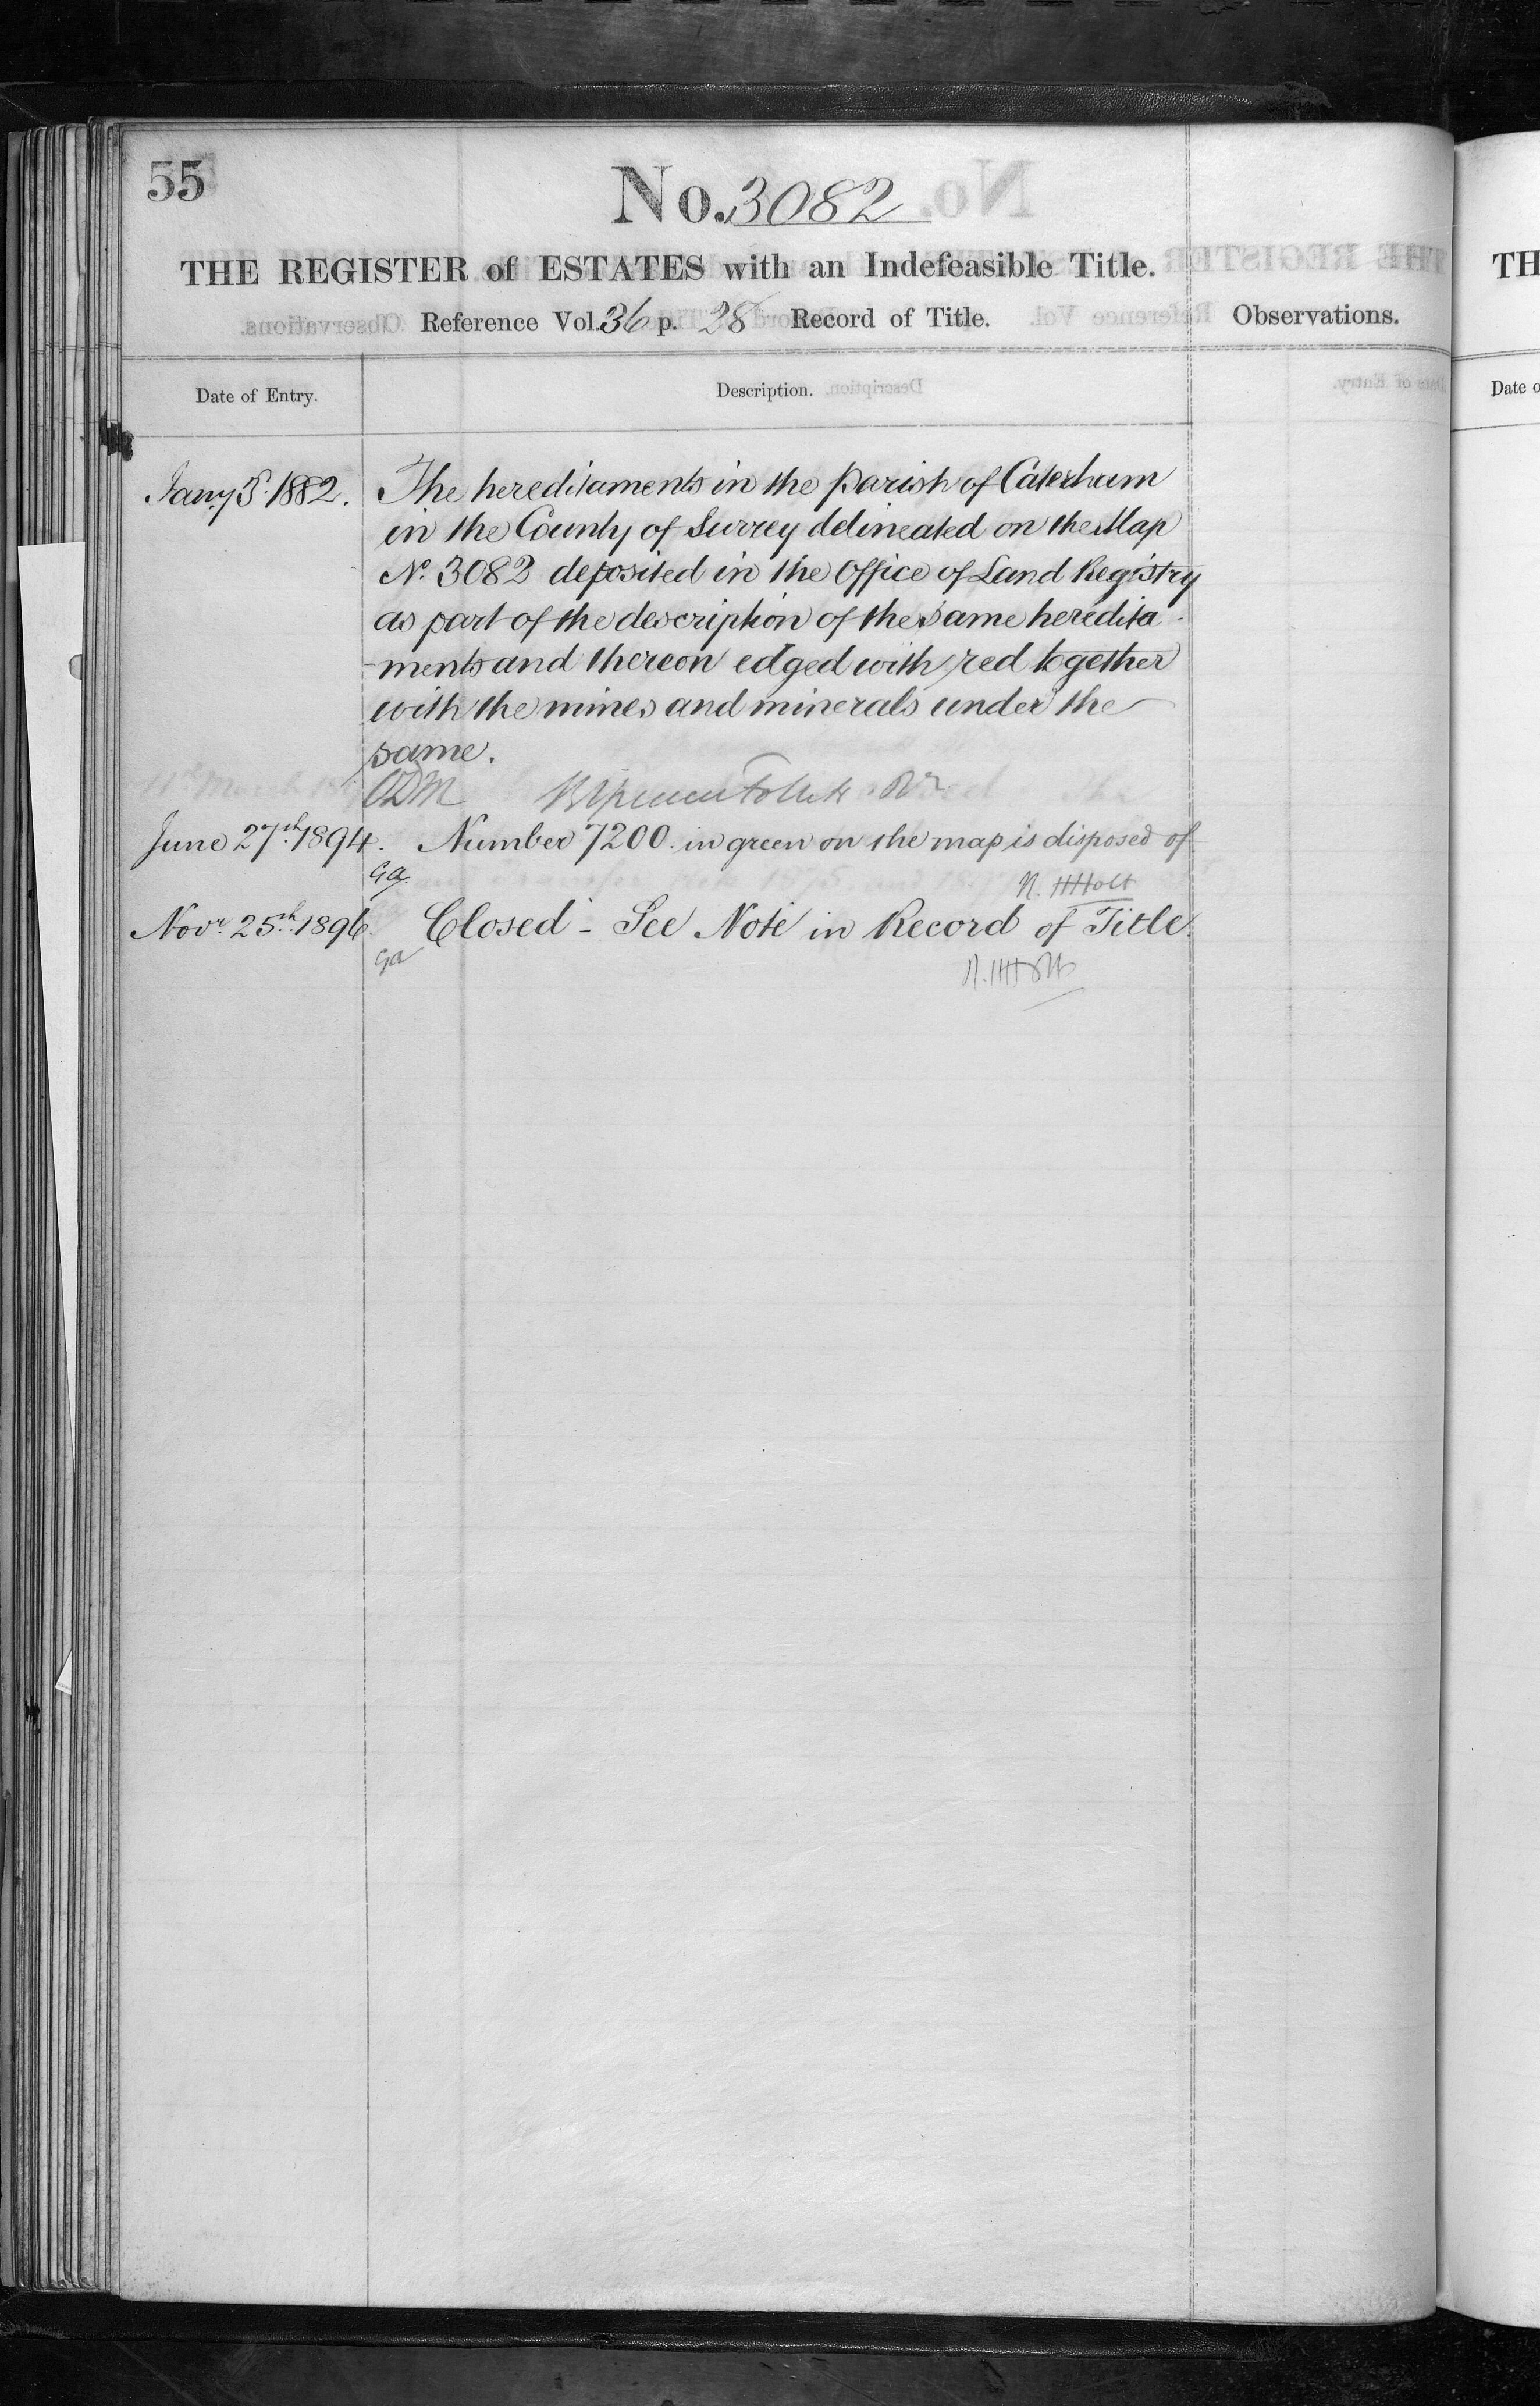 55
No. 3082
THE REGISTER of ESTATES with an Indefeasible Title.
Reference Vol. 36 p. 28 Record of Title.
Observations.
Date of Entry.
Description.
Jany 5 1882.
The hereditaments in the parish of Caterham
in the County of Surrey delineated on the Map
No. 3082 deposited in the Office of Land Registry
as part of the description of the same heredita-
-ments and thereon edged with red together
with the mines and minerals under the
same.
ODM
June 27th 1894.
Number 7200 in green on the map is disposed of
Ga
N. H Holt
Novr. 25th 1896.
Closed - See Note in Record of Title.
Ga
N. H Holt
TH
Date o